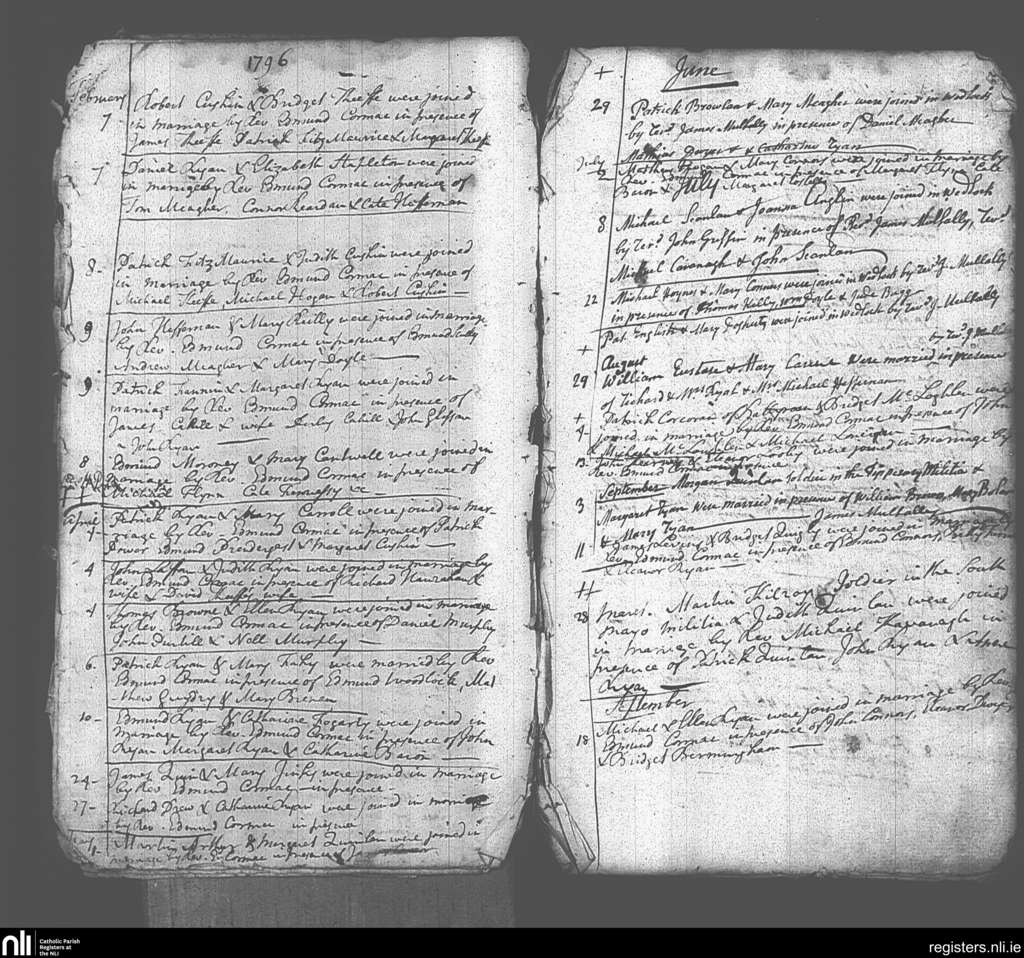 1796
February
Robert Cushin & Bridget Theefe were joined
7 in marriage by Rev Edmund Cormac in presence of
James Theefe Patrick Fitz Maurice & Margaret Theefe
7 Daniel Ryan & Elizabeth Stapleton were joined
in marriage by Rev Edmund Cormac in presence of
Tom Meagher, Connor Reardan & Cate Heffernan
8 - Patrick Fitz Maurice & Judith Cushin were joined
in marriage by Rev Edmund Cormac in presence of
Michael Theefe Michael Hogan & Robert Cushin
9 John Heffernan & Mary Reilly were joined in marriage
by Rev. Edmund Cormac in presence of Edmund
Andrew Meagher & Mary Doyle
9 Patrick Fannin & Margaret Ryan were joined in
marriage by Rev Edmund Cormac in presence of
James Cahill & wife Darby Cahill John Glessan
& John Ryan
8 Edmund Moroney & Mary Cantwell were joined in
marriage by Rev. Edmund Cormac in presence of
Michael Flynn Cate Hennessy &c
April Patrick Ryan & Mary Carroll were joined in mar-
4 - riage by Rev. Edmund Cormac in presence of Patrick
Power Edmund Prendergast & Margaret Cushin
4 John & Judith Ryan were joined in marriage by
Rev. Edmund Cormac in presence of Richard Hanrahan &
wife & David wife
4 Thomas Browne & Ellen Ryan were joined in marriage
by Rev. Edmund Cormac in presence of Daniel Murphy
John Darhill & Nell Murphy
6 Patrick Ryan & Mary Fahy were married by Rev
Edmund Cormac in presence of Edmund Woodlock, Mat
thew & Mary Brenen
10 - Edmund Ryan & Catharine Fogarty were joined in
marriage by Rev. Edmund Cormac in presence of John
Ryan Margaret Ryan & Catharine Bacon
24 - James Quin & Mary Jinks were joined in marriage
by Rev Edmund Cormac in presence
27 - Richard Drew & Catharine Ryan were joined in marriage
by Rev. Edmund Cormac in presence
Martin Arthur & Margaret Quinlan were joined in
marriage by Rev. E. Cormac in presence of
+ June
29 Patrick Browlan & Mary Meagher were joined in wedlock
by Revd James Mullally in presence of Daniel Meagher
Mathias Dwyer & Catharine Ryan
July Mathew & Mary Connors were joined in marriage by
2 Rev. Edmund Cormac in presence of Margaret Cate
Bacon & Margaret
July
8 Michael Scanlan & Joanna Anglin were joined in wedlock
by Revd John Griffin in presence of Revd James Mullally, Revd
Michael Cavanagh & John Scanlan
12 Michael Hoynes & Mary Connors were joined in wedlock by Revd J. Mullally
in presence of Thomas Kelly, Wm Doyle & Jude Bigg
Pat English & Mary Doherty were joined in wedlock by Revd J. Mullally
+ by Revd J. Mull
August
29 William Eustace & Mary Carew were married in presence
of Richard & Mrs Ryah & Mrs Michael Heffernan
+ Patrick Corcoran of & Bridget McLoghlen were
4 - joined in marriage by Rev. Edmund Cormac in presence of John
McLoughlin & Michael
13 & Eleanor were joined in marriage by
Rev. Edmund Cormac in presence
September Morgan Quinlan Soldier in the Tipperary Militia &
3 Margaret Ryan were married in presence of William Brown, Mary Bolan
& Mary Ryan James Mullally
11 - James & Bridget Quigly were joined in marriage by
Rev. Edmund Cormac in presence of Edmund Connors,
& Eleanor Ryan
28 mar. Martin Kilroy Soldier in the South
mayo militia & Judith Quinlan were joined
in marriage by Rev Michael Kavanagh in
presence of Patrick Quinlan John Ryan &
Ryan
September
Michael & Ellen Ryan were joined in marriage by Rev
18 Edmund Cormac in presence of John Connors, Eleanor Dwyer
& Bridget Bermingham
nli Catholic Parish
Registers at
the NLI
registers.nli.ie